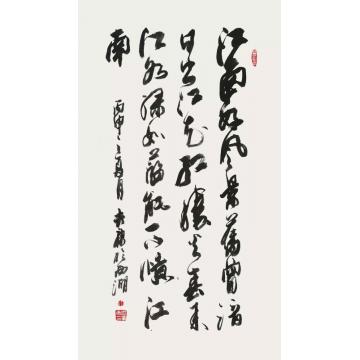 江南好风景旧曾谙
日出江花红胜火春来
江水绿如蓝能不忆江
南
丙申之夏月 于西湖